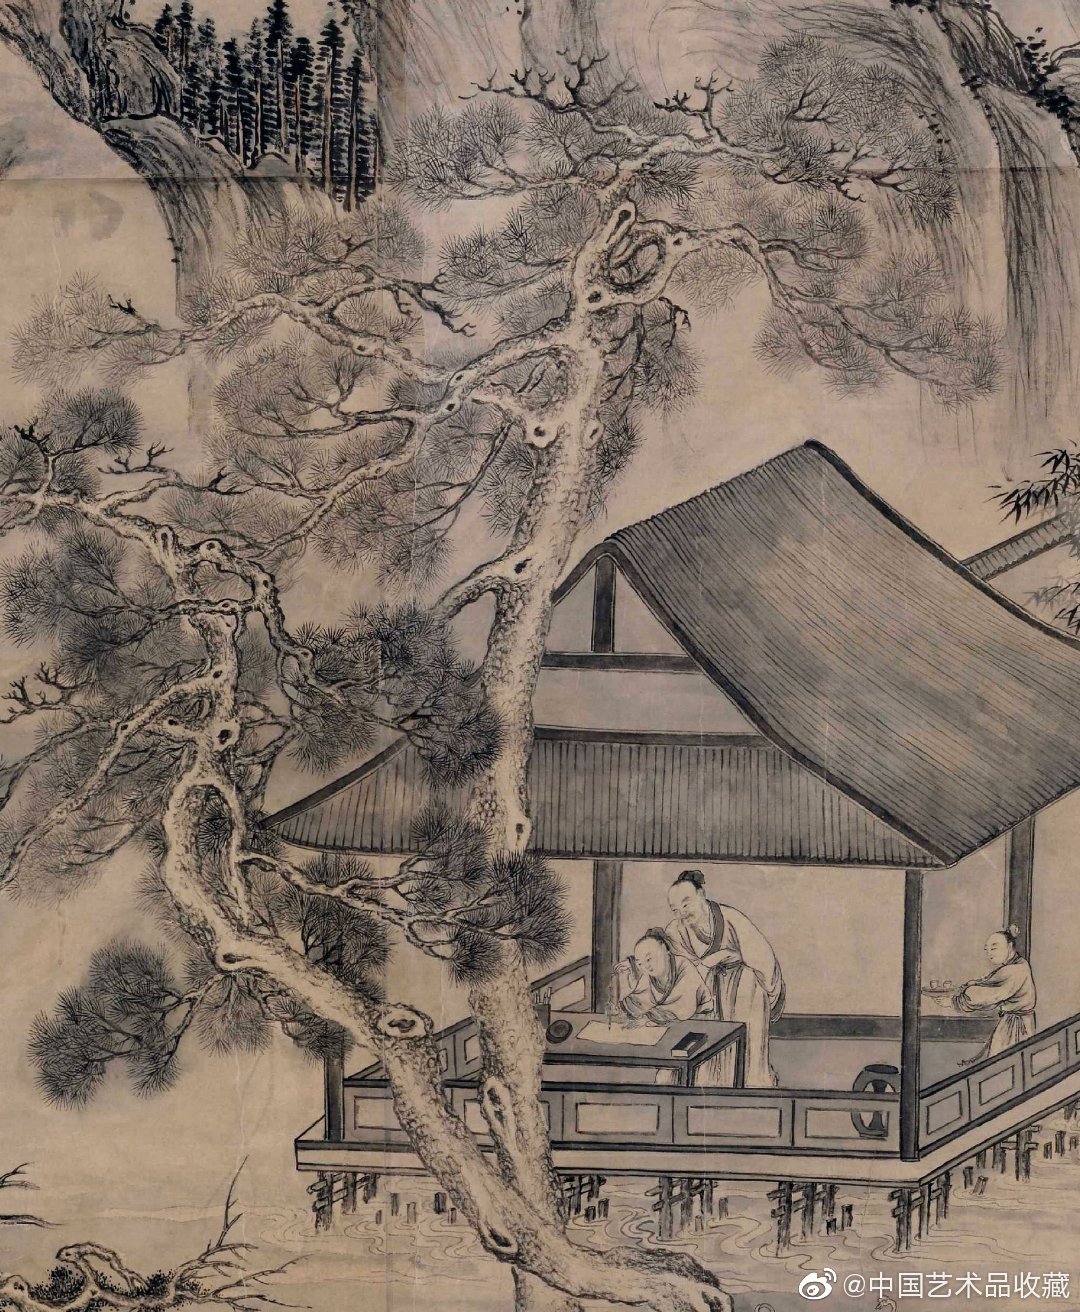 @中国艺术品收藏